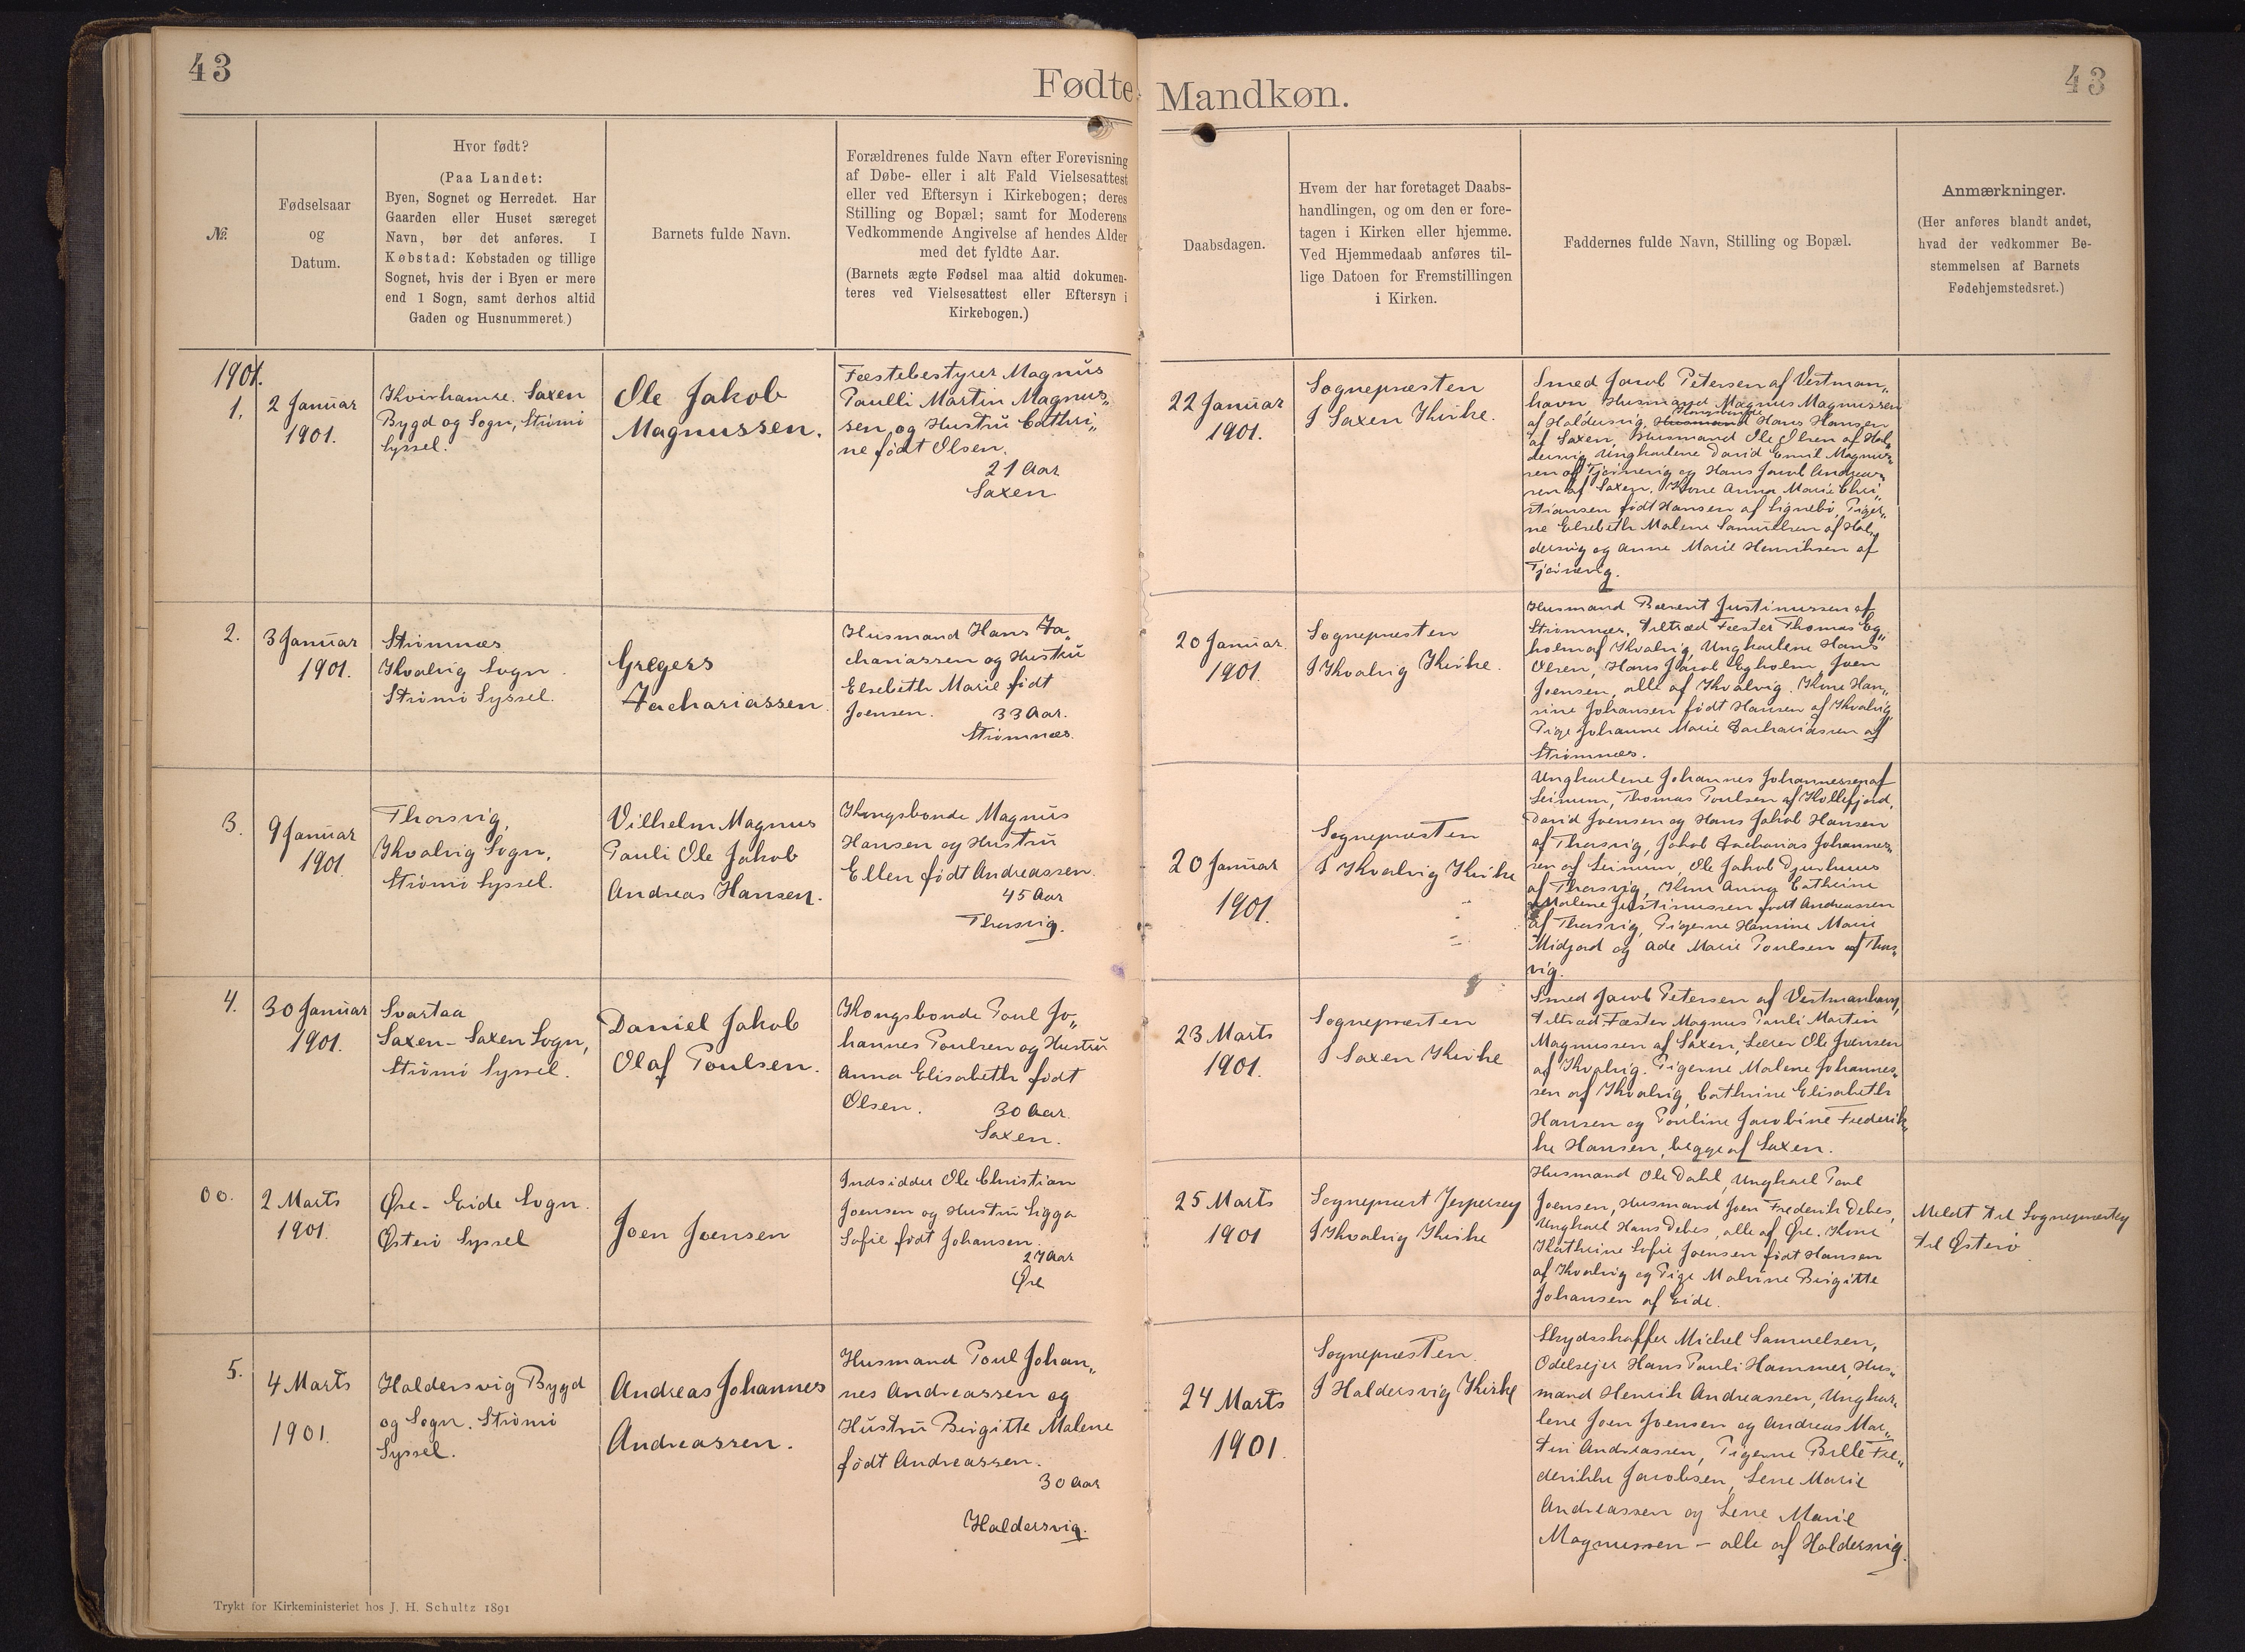 43
Fødte Mandkøn.
43
№.
Fødselsaar
og
Datum.
Hvor født?
(Paa Landet:
Byen, Sognet og Herredet. Har
Gaarden eller Huset særeget
Navn, bør det anføres. I
Købstad: Købstaden og tillige
Sognet, hvis der i Byen er mere
end 1 Sogn, samt derhos altid
Gaden og Husnummeret.)
Barnets fulde Navn.
Forældrenes fulde Navn efter Forevisning
af Døbe- eller i alt Fald Vielsesattest
eller ved Eftersyn i Kirkebogen; deres
Stilling og Bopæl; samt for Moderens
Vedkommende Angivelse af hendes Alder
med det fyldte Aar.
(Barnets ægte Fødsel maa altid dokumen-
teres ved Vielsesattest eller Eftersyn i
Kirkebogen.)
Daabsdagen.
Hvem der har foretaget Daabs-
handlingen, og om den er fore-
tagen i Kirken eller hjemme.
Ved Hjemmedaab anføres til-
lige Datoen for Fremstillingen
i Kirken.
Faddernes fulde Navn, Stilling og Bopæl.
Anmærkninger.
(Her anføres blandt andet,
hvad der vedkommer Be-
stemmelsen af Barnets
Fødehjemstedsret.)
1901.
1.
2 Januar
1901.
Kvirhamre. Saxen
Bygd og Sogn, Strømø
Syssel.
Ole Jakob
Magnussen.
Fæstebestyrer Magnus
Paulli Martin Magnus„
sen og Hustru Cathri„
ne født Olsen.
21 Aar
Saxen
22 Januar
1901.
Sognepræsten
I Saxen Kirke.
Smed Jacob Petersen af Vestman„
havn Husmand Magnus Magnussen
af Haldersvig, Kongsbonde Husmand Hans Hansen
af Saxen, Husmand Ole Olsen af Hal„
dersvig Ungkarlene David Emil Magnus„
sen af Tjørnevig og Hans Jacob Andreas„
sen af Saxen. Kone Anna Marie Chri„
stiansen født Hansen af Signebø, Piger„
ne Elsebeth Malene Samuelsen af Hal„
dersvig og Anne Marie Henriksen af
Tjørnevig.
2.
3 Januar
1901.
Strømnæs
Kvalvig Sogn
Strømø Syssel.
Gregers
Zachariassen
Husmand Hans Za„
chariassen og Hustru
Elsebeth Marie født
Joensen. 33 Aar.
Strømnæs.
20 Januar
1901.
Sognepræsten
I Kvalvig Kirke.
Husmand Barent Justinussen af
Strømnæs, tiltræd Fæster Thomas Eg„
holm af Kvalvig, Ungkarlene Hans
Olsen, Hans Jacob Egholm, Joen
Joensen, alle af Kvalvig. Kone Han„
sine Johansen født Hansen af Kvalvig,
Pige Johanne Marie Zachariassen af
Strømnæs.
3.
9 Januar
1901.
Thorsvig,
Kvalvig Sogn,
Strømø Syssel.
Vilhelm Magnus
Pauli Ole Jakob
Andreas Hansen.
Kongsbonde Magnus
Hansen og Hustru
Ellen født Andreassen.
45 Aar
Thorsvig.
20 Januar
1901.
Sognepræsten
I Kvalvig Kirke
Ungkarlene Johannes Johannessen af
Leinum, Thomas Poulsen af Kollefjord,
David Joensen og Hans Jakob Hansen
af Thorsvig, Jakob Zacharias Johannes„
sen af Leinum, Ole Jakob Djurhuus
af Thorsvig, Kone Anna Cathrine
Malene Justinussen født Andreassen
af Thorsvig, Pigerne Hansine Marie
Midjord og Ade Marie Poulsen af Thors„
vig.
4.
30 Januar
1901.
Svartaa
Saxen - Saxen Sogn,
Strømø Syssel.
Daniel Jakob
Olaf Poulsen.
Kongsbonde Poul Jo„
hannes Poulsen og Hustru
Anna Elisabeth født
Olsen. 30 Aar.
Saxen.
23 Marts
1901.
Sognepræsten
I Saxen Kirke
Smed Jacob Petersen af Vestmanhavn,
tiltræd Fæster Magnus Pauli Martin
Magnussen af Saxen, Lærer Ole Joensen
af Kvalvig. Pigerne Malene Johannes„
sen af Kvalvig, Cathrine Elisabeth
Hansen og Pouline Jacobine Frederik„
ke Hansen, begge af Saxen.
00.
2 Marts
1901.
Øre - Eide Sogn.
Østerø Syssel
Joen Joensen
Indsidder Ole Christian
Joensen og Hustru Sigga
Sofie født Johansen.
27 Aar
Øre
25 Marts
1901
Sognepræst Jespersen
I Kvalvig Kirke
Husmand Ole Dahl, Ungkarl Poul
Joensen, Husmand Joen Frederik Debes,
Ungkarl Hans Debes, alle af Øre. Kone
Kathrine Sofie Joensen født Hansen
af Kvalvig og Pige Malvine Birgitte
Johansen af Eide.
Meldt til Sognepræsten
til Østerø
5.
4 Marts
1901.
Haldersvig Bygd
og Sogn. Strømø
Syssel.
Andreas Johannes
Andreassen.
Husmand Poul Johan„
nes Andreassen og
Hustru Birgitte Malene
født Andreassen.
30 Aar
Haldersvig.
24 Marts
1901.
Sognepræsten.
I Haldersvig Kirke
Skydsskaffer Michel Samuelsen,
Odelsejer Hans Pauli Hammer, Hus„
mand Henrik Andreassen, Ungkar„
lene Joen Joensen og Andreas Mar„
tin Andreassen, Pigerne Bille Fre„
derikke Jacobsen, Lene Marie
Andreassen og Lene Marie
Magnussen - alle af Haldersvig.
Trykt for Kirkeministeriet hos J. H. Schultz 1891